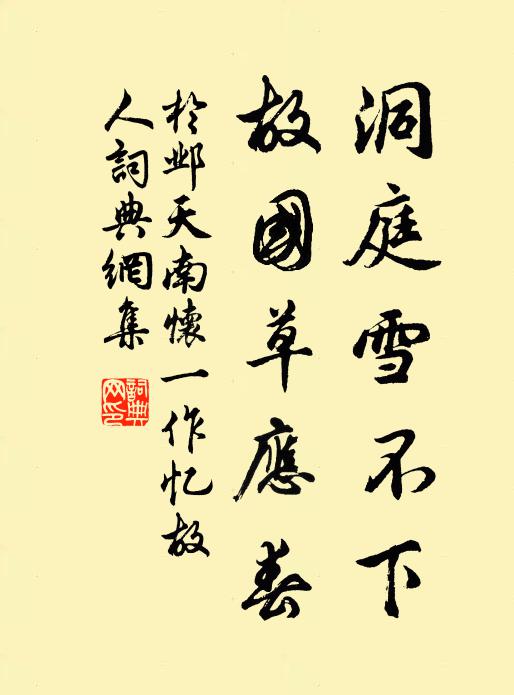 洞庭雪不下
故國草應春
於邺天南懷一作忆故
人詞典網集
詞典
网印